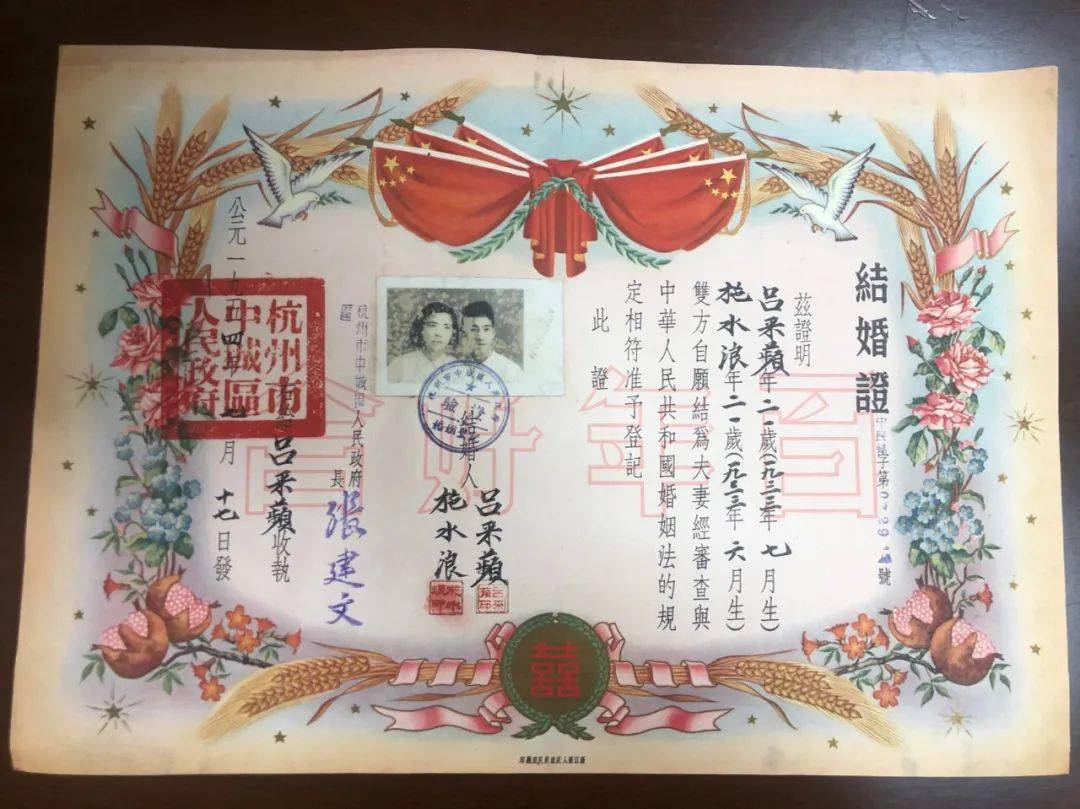 結婚證
中民結字第
號
茲證明
呂采蘋年二一歲(一九三三年七月生)
施水浪年二一歲(一九三三年六月生)
雙方自願結爲夫妻經審查與
中華人民共和國婚姻法的規
定相符准予登記
此證
百年好合
結婚人
呂采蘋
施水浪
杭州市中城區人民政府
區長
張建文
呂采蘋收執
公元一九五四年七月十七日發
杭州市
中城區
人民政府
囍